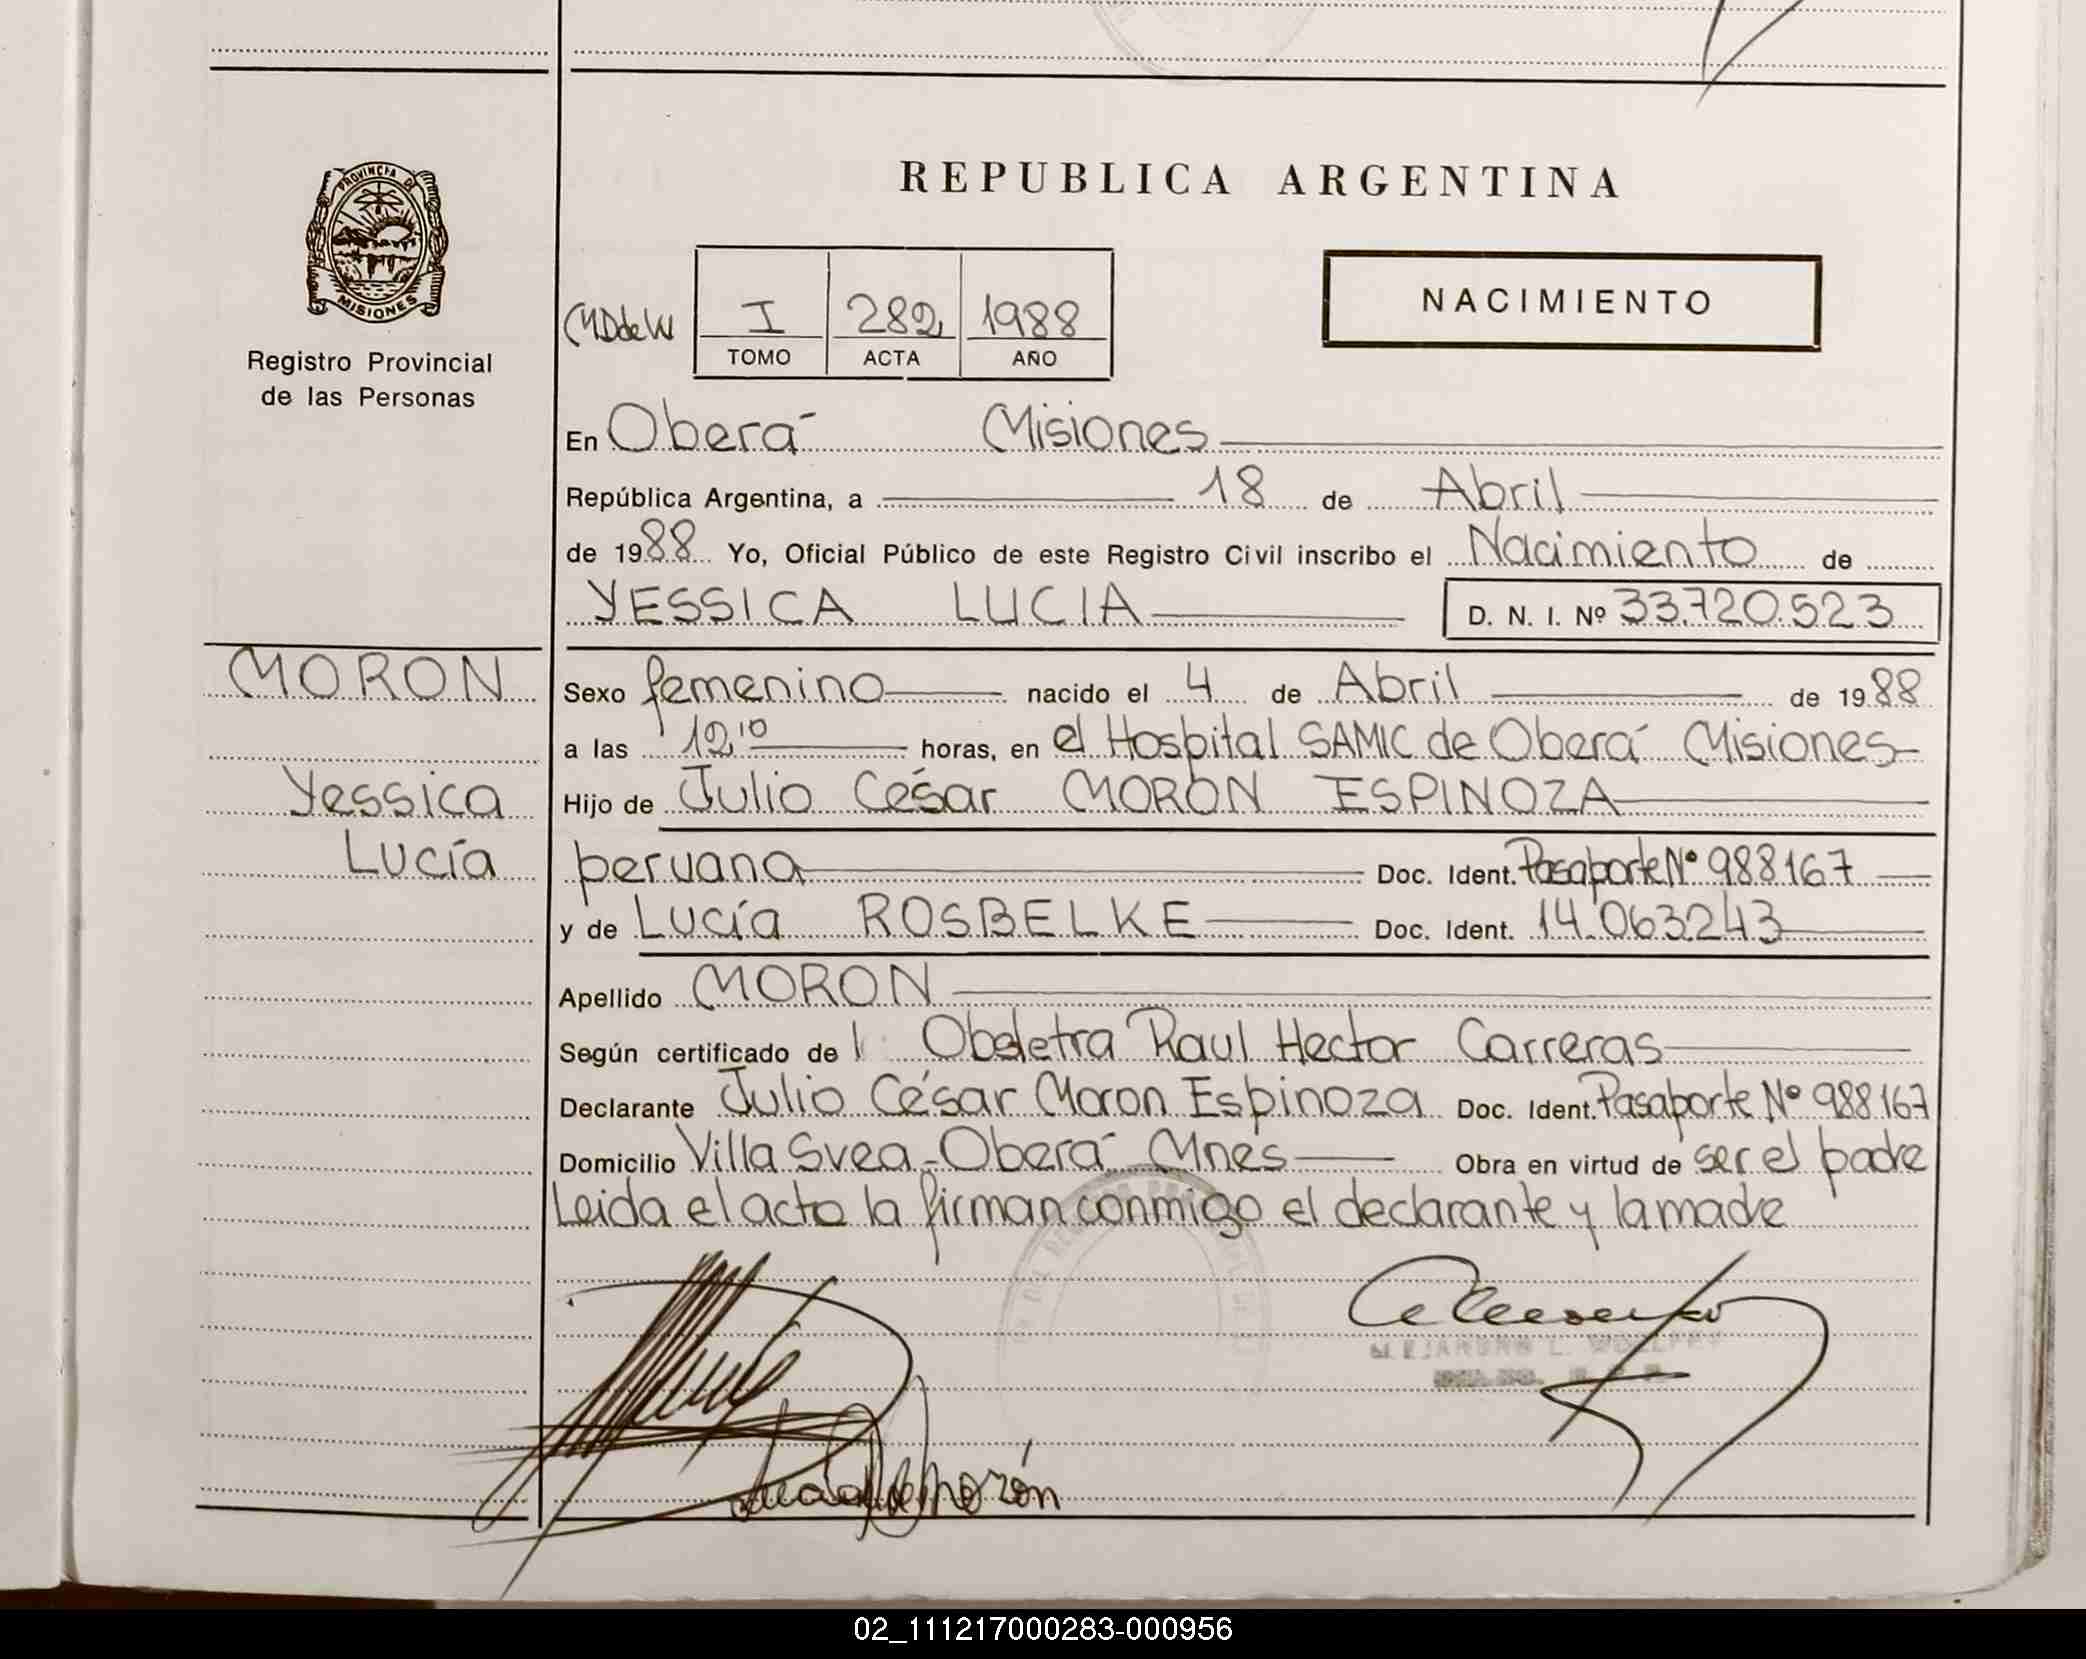 REPUBLICA ARGENTINA
PROVINCIA DE
MISIONES
Registro Provincial
de las Personas
I 282 1988
TOMO ACTA AÑO
NACIMIENTO
En Oberá Misiones
República Argentina, a 18 de Abril
de 1988 Yo, Oficial Público de este Registro Civil inscribo el Nacimiento de
YESSICA LUCIA D. N. I. Nº 33.720.523
MORON
Yessica
Lucía
Sexo femenino nacido el 4 de Abril de 1988
a las 12,10 horas, en el Hospital SAMIC de Oberá Misiones
Hijo de Julio César MORON ESPINOZA
peruana Doc. Ident. Pasaporte Nº 988167
y de Lucía ROSBELKE Doc. Ident. 14.063243
Apellido MORON
Según certificado de l Obstetra Raul Hector Carreras
Declarante Julio César Moron Espinoza Doc. Ident. Pasaporte Nº 988167
Domicilio Villa Svea - Oberá Mnes Obra en virtud de ser el padre
Leida el acta la firman conmigo el declarante y la madre
ALEJANDRO L.
de Morón
02_111217000283-000956